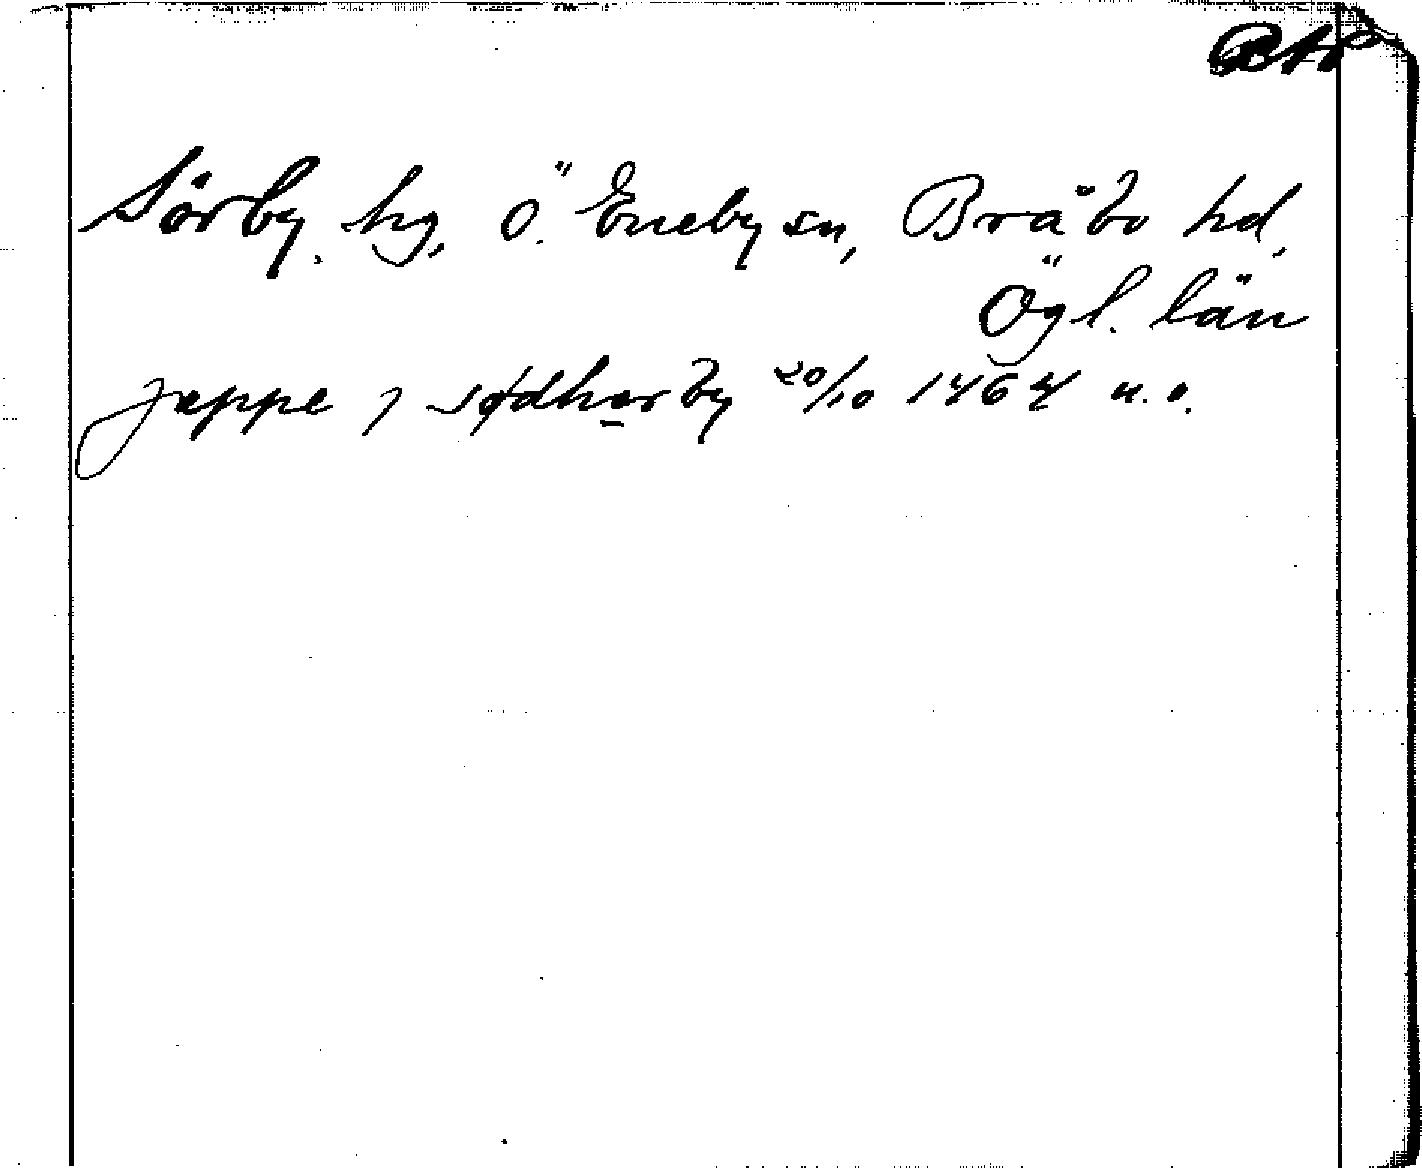 Sörby, hg, Ö. Eneby sn, Bråbo hd,
Ögl. län
jæppe j sødharby 20/10 1464 u.o.